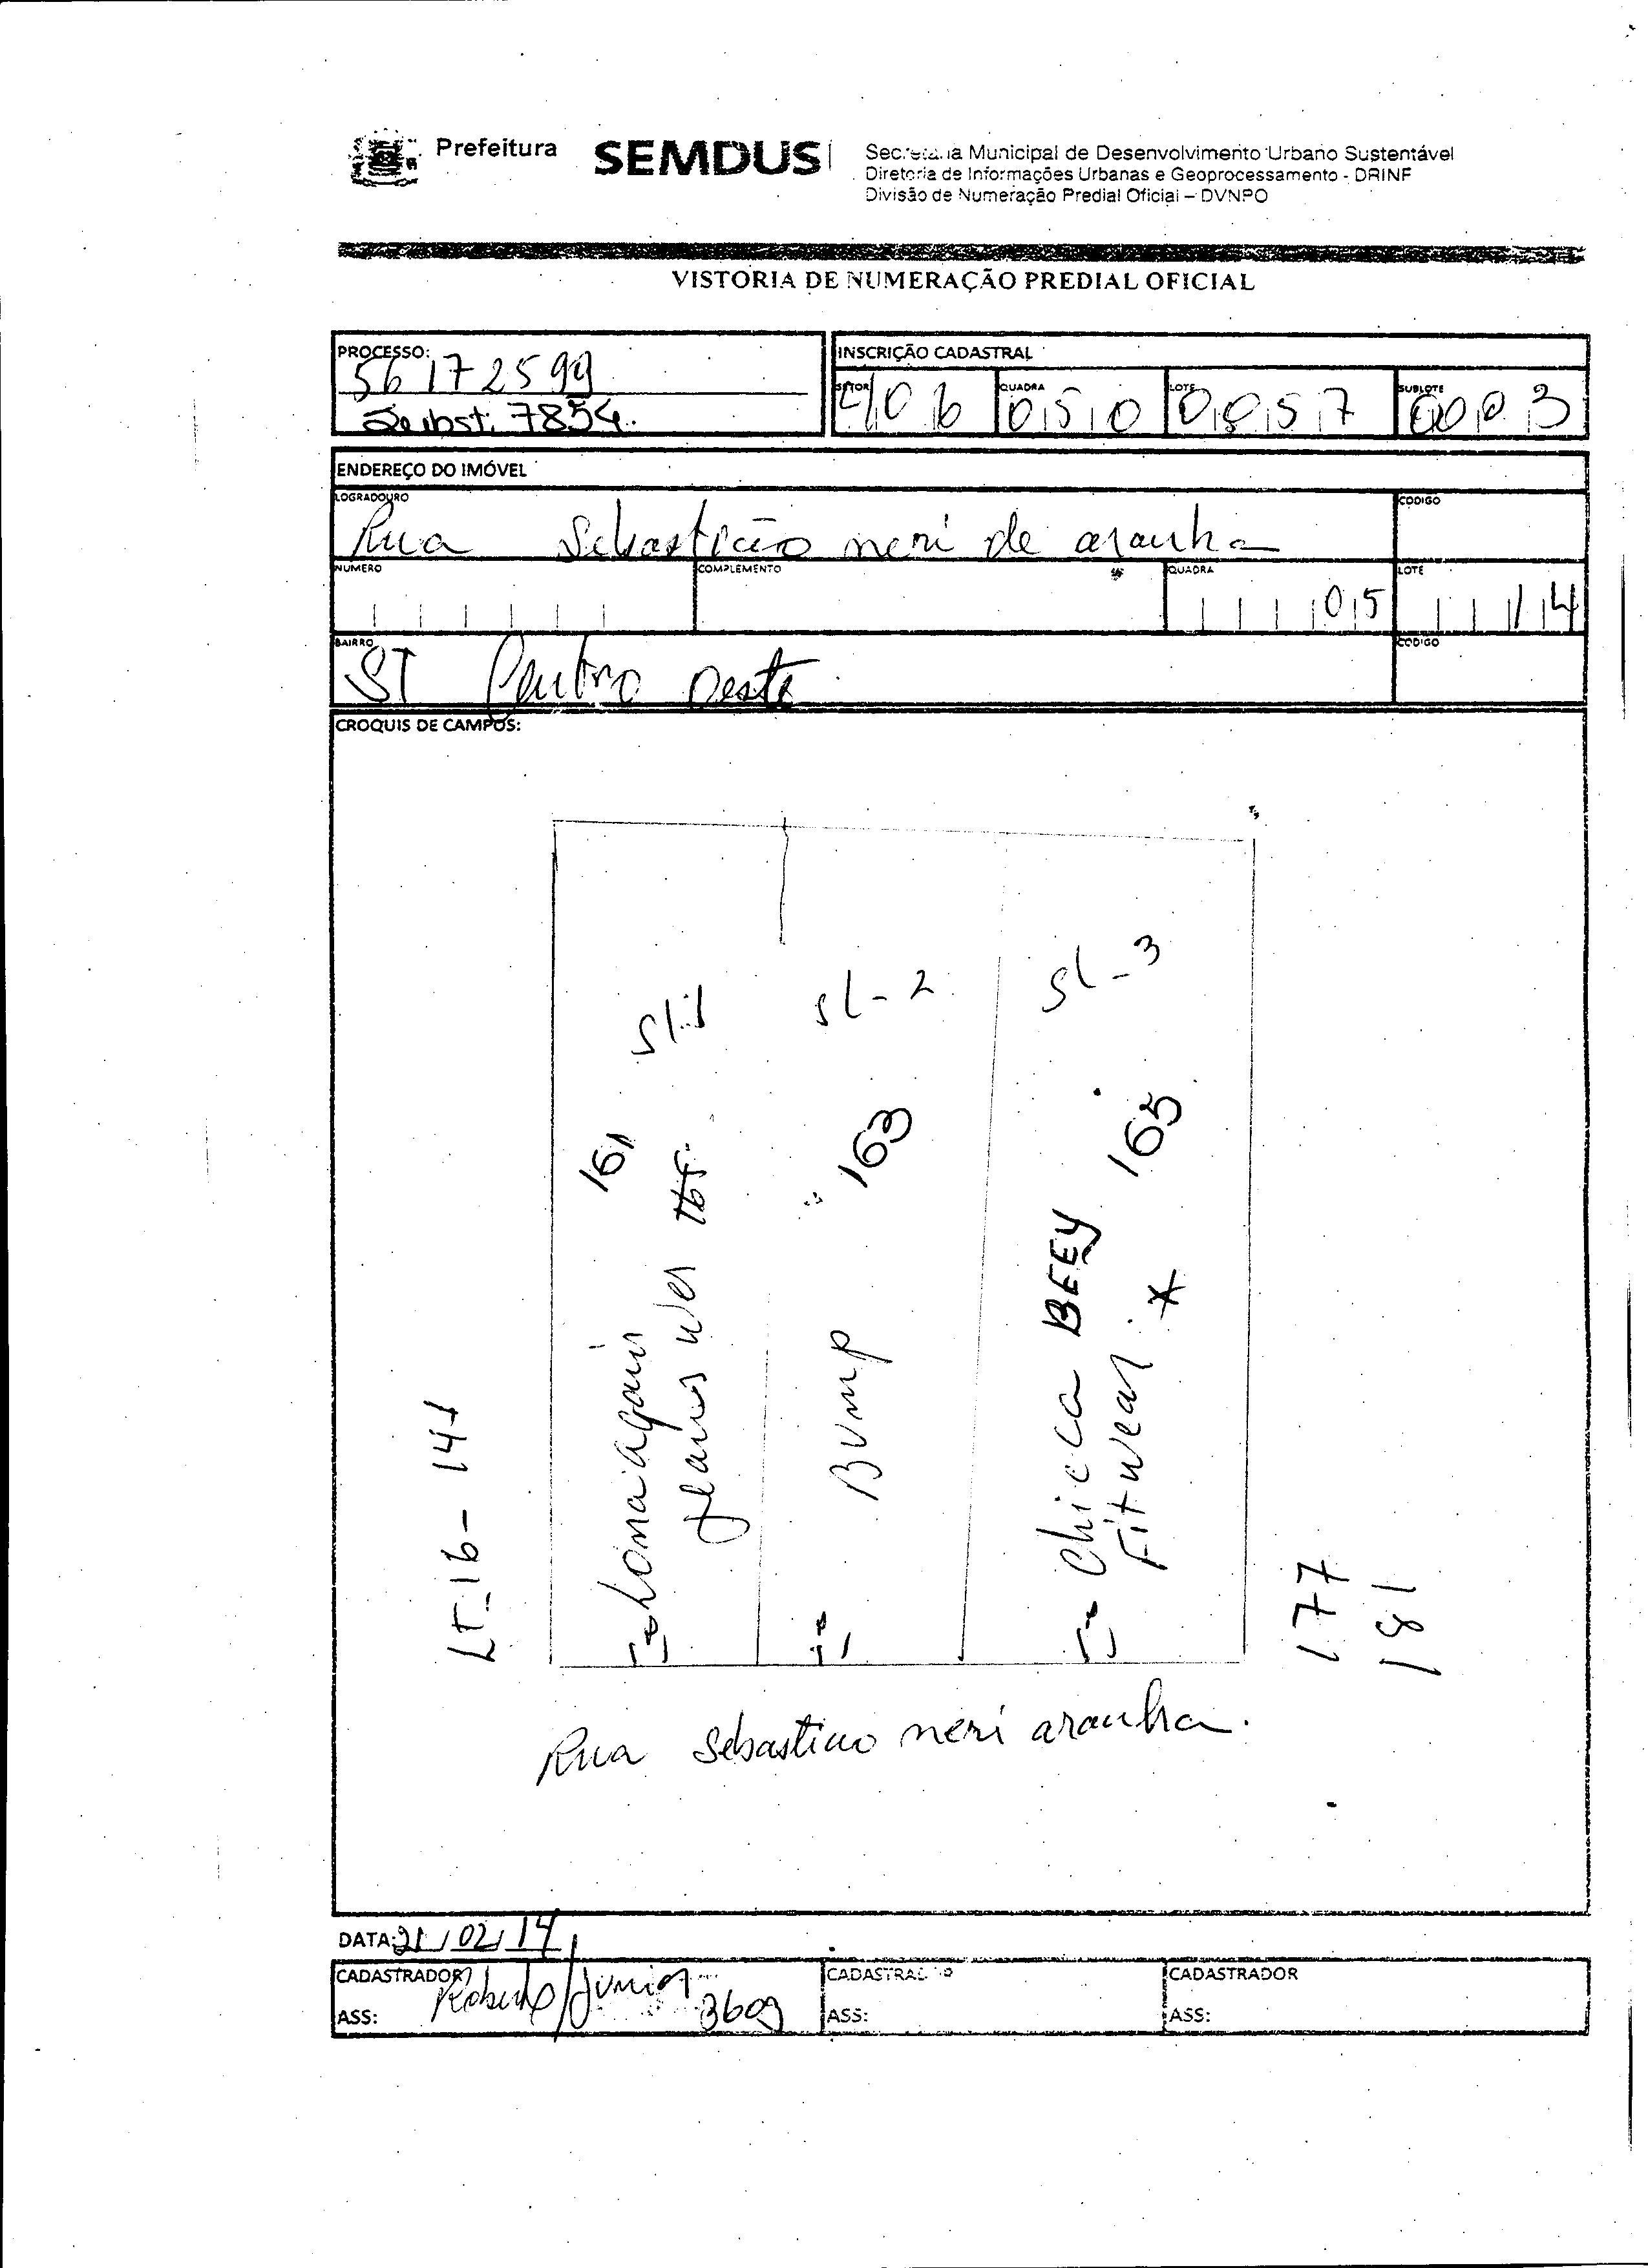 Prefeitura SEMDUS
Secretaria Municipal de Desenvolvimento Urbano Sustentável
Diretoria de Informações Urbanas e Geoprocessamento - DRINF
Divisão de Numeração Predial Oficial – DVNPO
VISTORIA DE NUMERAÇÃO PREDIAL OFICIAL
PROCESSO:
56172599
Subst: 7854.
INSCRIÇÃO CADASTRAL
SETOR 406 QUADRA 050 LOTE 0057 SUBLOTE 0003
ENDEREÇO DO IMÓVEL
LOGRADOURO CODIGO
Rua Sebastião neri de aranha
NUMERO COMPLEMENTO QUADRA LOTE
05 14
BAIRRO CODIGO
ST Centro Oeste
CROQUIS DE CAMPOS:
LT-16- 141
161
jeans
sl-2
163
Bump
sl-3
165
Chicca BEEY
Fitwear *
177
181
Rua Sebastiao neri aranha.
DATA: 21/02/14
CADASTRADOR CADASTRADOR CADASTRADOR
Roberto/Junior
ASS: 3609 ASS: ASS: